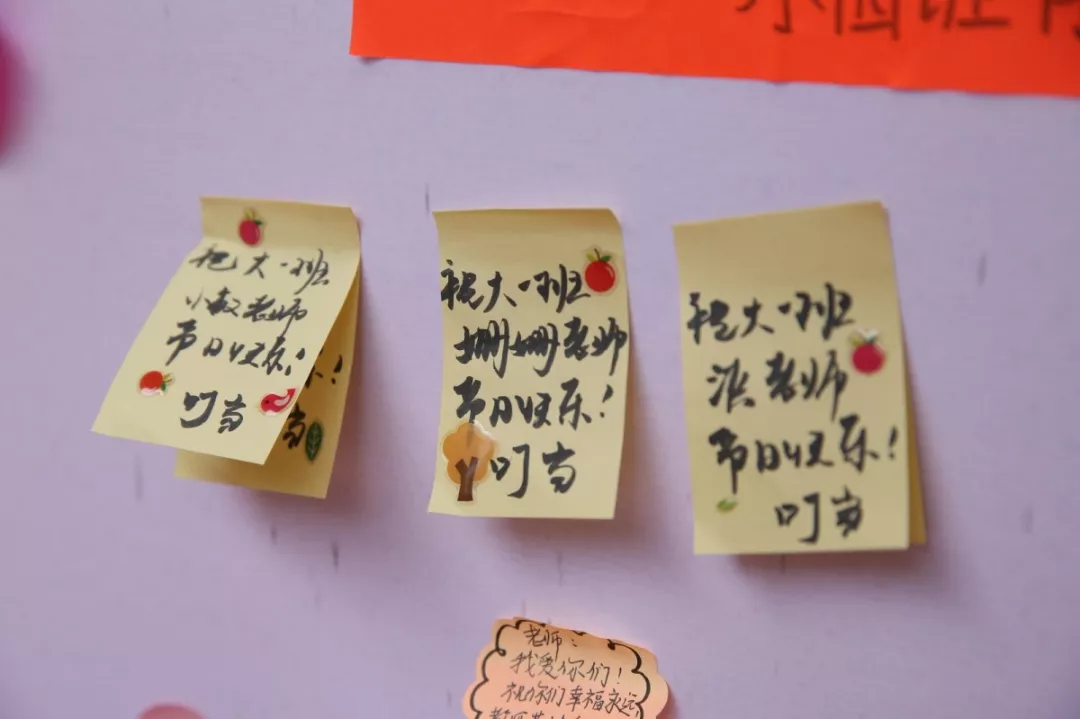 祝大一班
小敏老师
节日快乐!
叮当
祝大一班
姗姗老师
节日快乐!
叮当
祝大一班
洪老师
节日快乐!
叮当
老师:
我爱你们!
祝你们幸福永远,